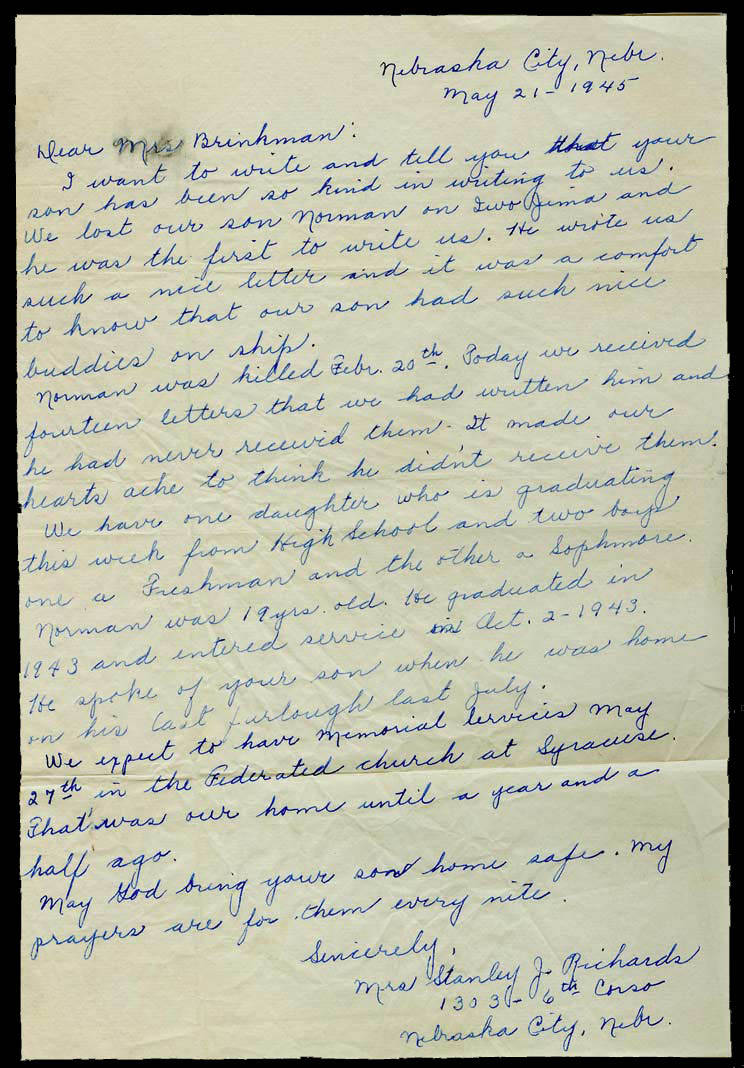 Nebraska City, Nebr.
May 21 - 1945
Dear Mrs Brinkman:
I want to write and tell you that your
son has been so kind in writing to us.
We lost our son Norman on Iwo Jima and
he was the first to write us. He wrote us
such a nice letter and it was a comfort
to know that our son had such nice
buddies on ship.
Norman was killed Febr. 20th. Today we received
fourteen letters that we had written him and
he had never received them. It made our
hearts ache to think he didn't receive them.
We have one daughter who is graduating
this week from High School and two boys
one a Freshman and the other a Sophmore.
Norman was 19 yrs. old. He graduated in
1943 and entered service on Oct. 2 - 1943.
He spoke of your son when he was home
on his last furlough last July.
We expect to have Memorial Services May
27th in the Federated church at Syracuse.
That was our home until a year and a
half ago.
May God bring your son home safe. My
prayers are for them every nite.
Sincerely,
Mrs Stanley J. Richards
1303 - 6th Corso
Nebraska City, Nebr.